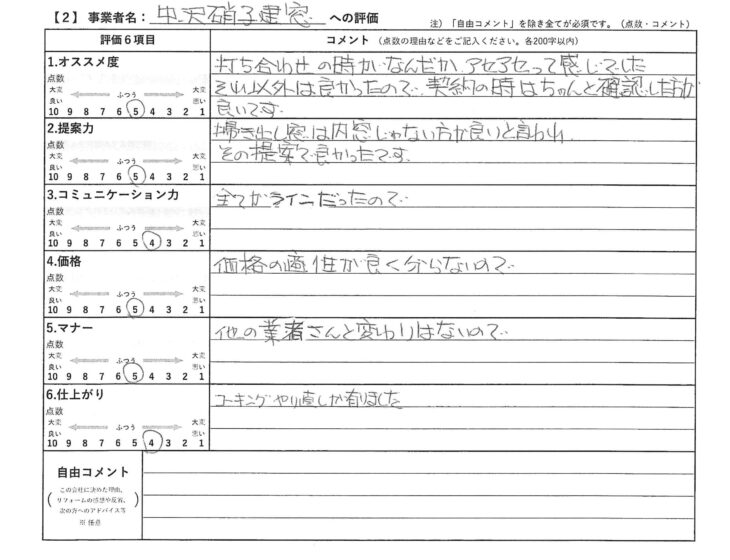 【2】事業者名：中沢硝子建窓 への評価
注）「自由コメント」を除き全てが必須です。（点数・コメント）
評価6項目 コメント（点数の理由などをご記入ください。各200字以内）
1.オススメ度
点数
大変良い ふつう 大変悪い
10 9 8 7 6 5 4 3 2 1
打ち合わせの時か、なんだか、アセアセって感じでした
それ以外は良かったので、契約の時はちゃんと確認した方が
良いです。
2.提案力
点数
大変良い ふつう 大変悪い
10 9 8 7 6 5 4 3 2 1
掃き出し窓は内窓じゃない方が良いと言われ
その提案で良かったです。
3.コミュニケーション力
点数
大変良い ふつう 大変悪い
10 9 8 7 6 5 4 3 2 1
全てがラインだったので
4.価格
点数
大変良い ふつう 大変悪い
10 9 8 7 6 5 4 3 2 1
価格の適性が良く分らないので
5.マナー
点数
大変良い ふつう 大変悪い
10 9 8 7 6 5 4 3 2 1
他の業者さんと変わりはないので
6.仕上がり
点数
大変良い ふつう 大変悪い
10 9 8 7 6 5 4 3 2 1
コーキングやり直しが有りました
自由コメント
（この会社に決めた理由、
リフォームの感想や反省、
次の方へのアドバイス等
※ 任意）